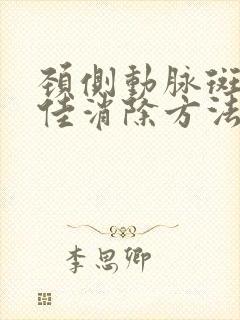 頚側動脉斑
佳消除方法
李思卿